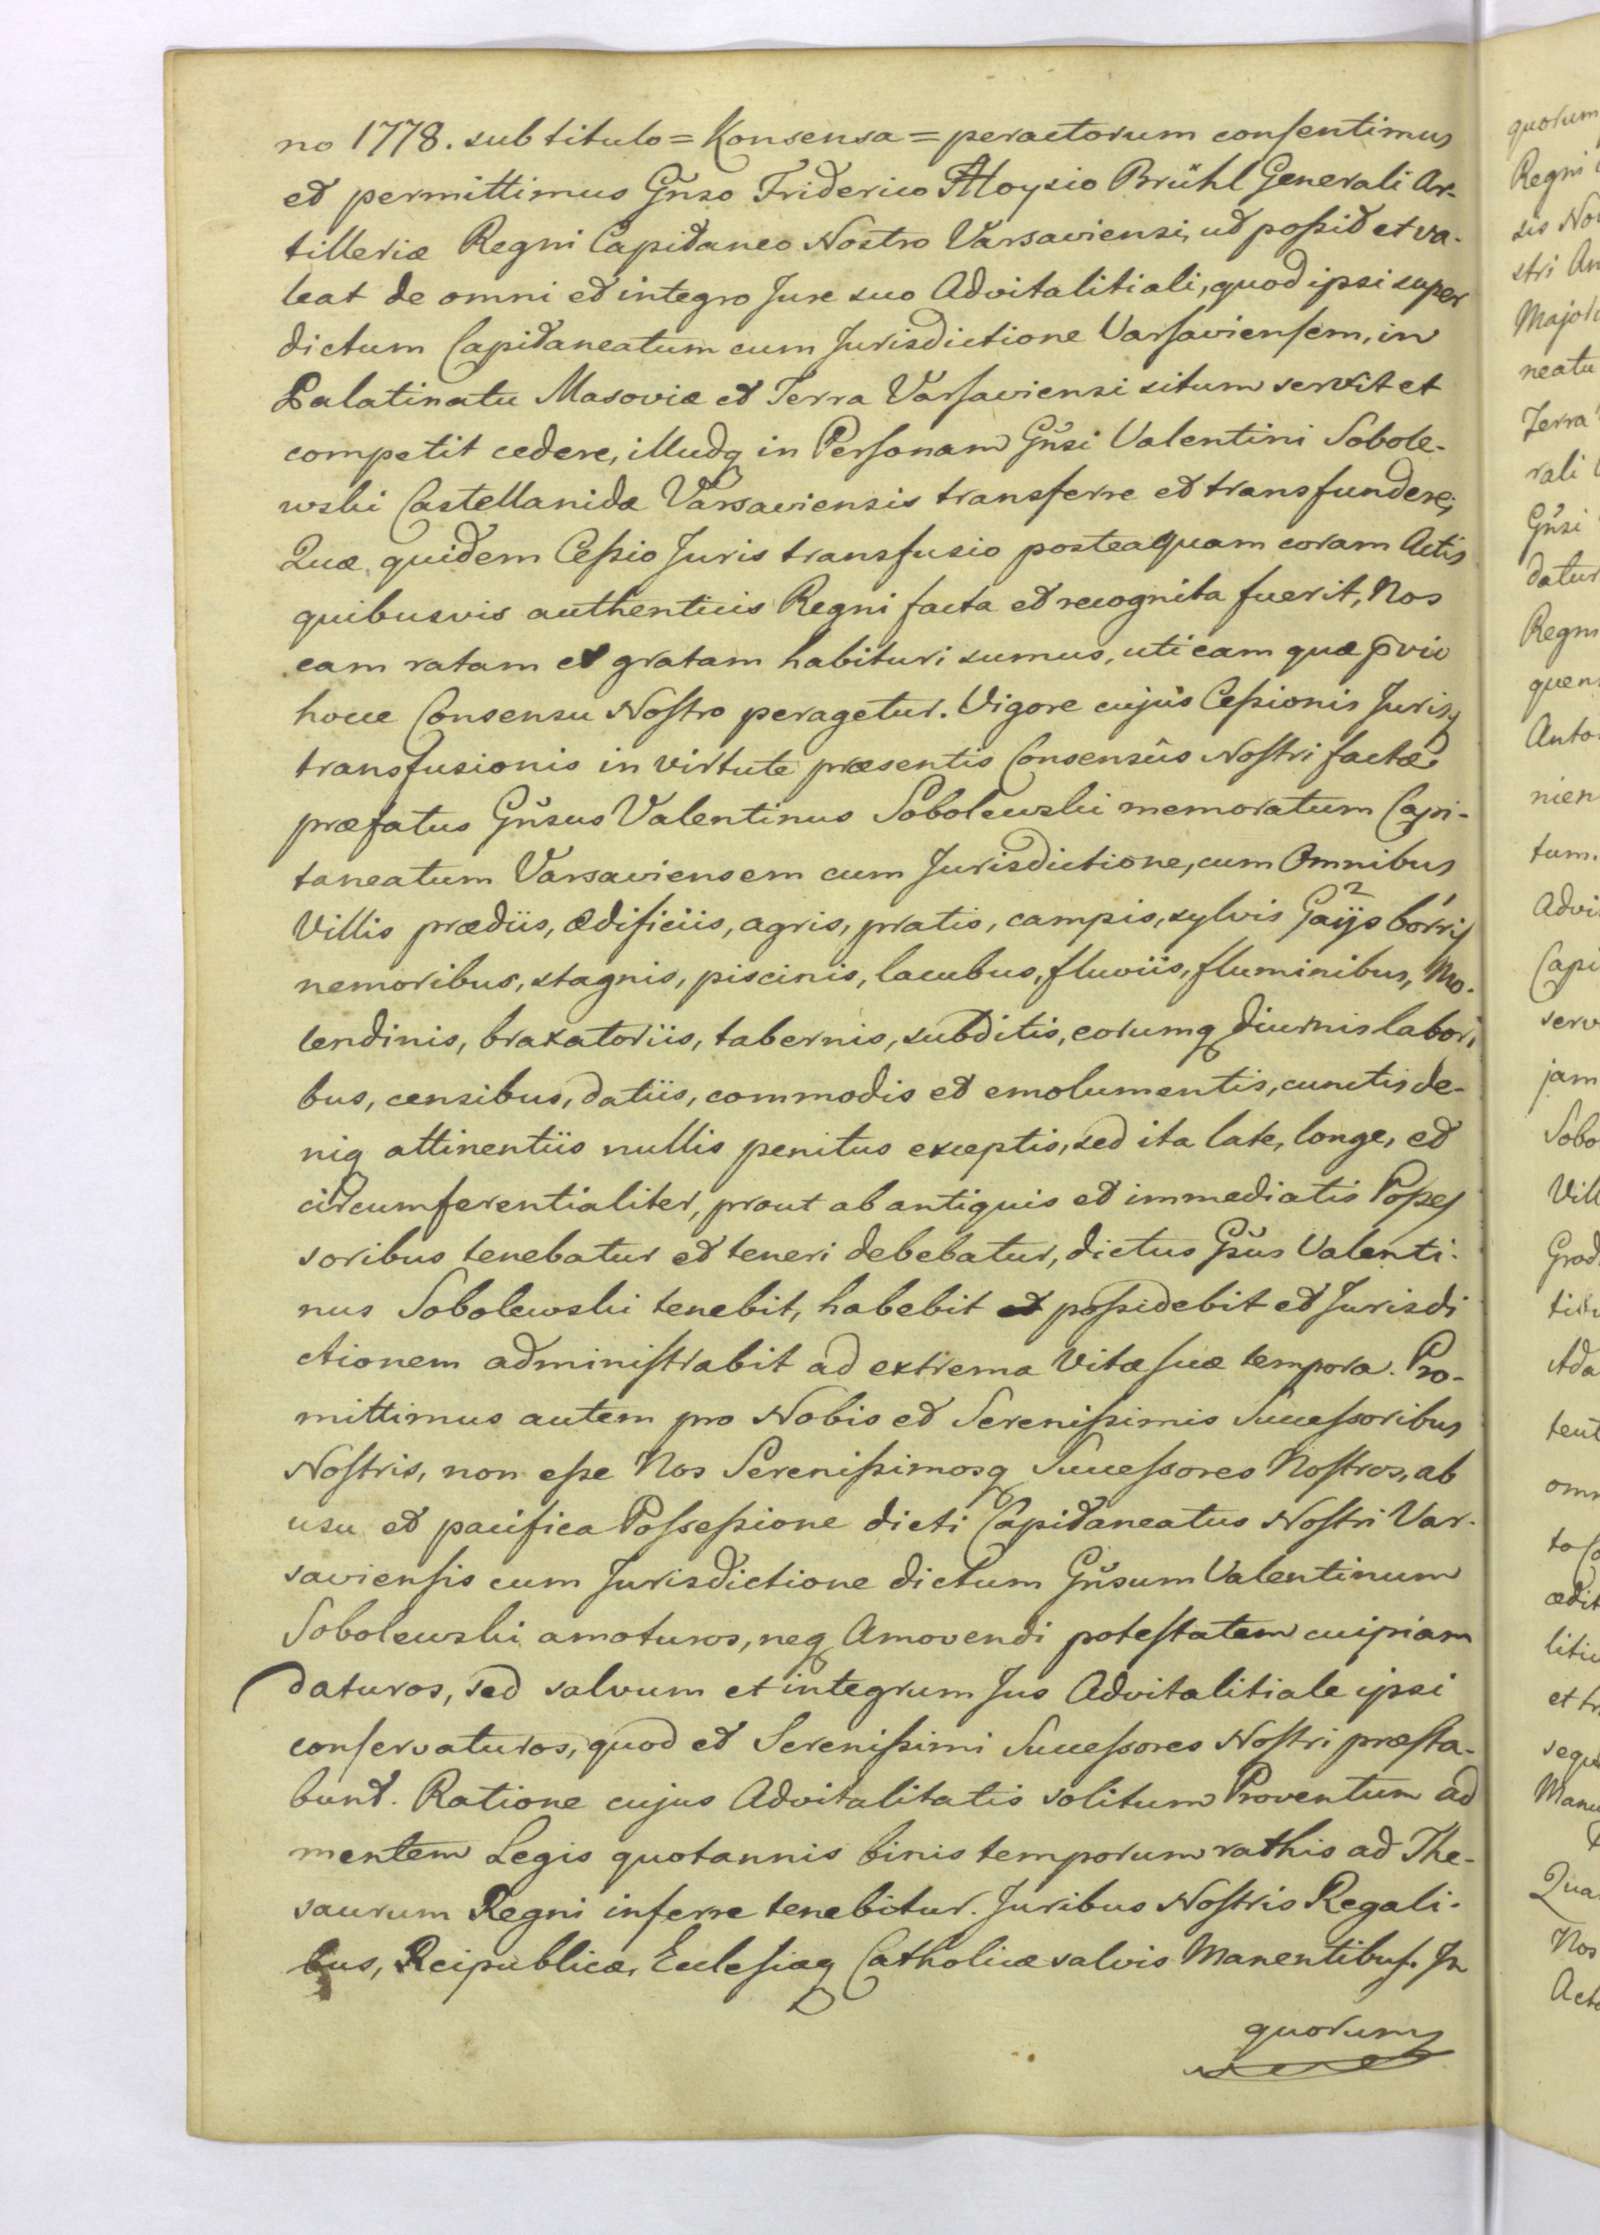 no 1778. sub titulo = Konsensa = peractorum consentimus
et permittimus Gñso Friderico Aloysio Brühl Generali Ar-
tilleriæ Regni Capitaneo Nostro Varsaviensi, ut possit et va-
leat de omni et integro Jure suo Advitalitiali, quod ipsi super
dictum Capitaneatum cum Jurisdictione Varsaviensem, in
Palatinatu Masoviæ et Terra Varsaviensi situm servit et
competit cedere, illudq in Personam Gñsi Valentini Sobole-
wski Castellanidæ Varsaviensis transferre et transfundere;
Quæ quidem Cessio Juris transfusio posteaquam coram Actis
quibusvis authenticis Regni facta et recognita fuerit, Nos
eam ratam et gratam habituri sumus, uti eam quæ p̄vio
hocce Consensu Nostro peragetur. Vigore cujus Cessionis Jurisq
transfusionis in virtute præsentis Consensûs Nostri factæ
præfatus Gñsus Valentinus Sobolewski memoratum Capi-
taneatum Varsaviensem cum Jurisdictione, cum Omnibus
Villis prædiis, ædificiis, agris, pratis, campis, sylvis Gaijs borris
nemoribus, stagnis, piscinis, lacubus, fluviis, fluminibus, Mo-
lendinis, braxatoriis, tabernis, subditis, eorumq diurnis labori
bus, censibus, datiis, commodis et emolumentis, cunctis de-
niq attinentiis nullis penitus exceptis, sed ita late, longe, et
circumferentialiter, prout ab antiquis et immediatis Posses
soribus tenebatur et teneri debebatur, dictus Gñsus Valenti-
nus Sobolewski tenebit, habebit et possidebit et Jurisdi
ctionem administrabit ad extrema Vitæ suæ tempora. Pro-
mittimus autem pro Nobis et Serenissimis Successoribus
Nostris, non esse Nos Serenissimosq Successores Nostros, ab
usu et pacifica Possessione dicti Capitaneatus Nostri Var-
saviensis cum Jurisdictione dictum Gñsum Valentinum
Sobolewski amoturos, neq Amovendi potestatem cuipiam
daturos, sed salvum et integrum Jus Advitalitiale ipsi
conservaturos, quod et Serenissimi Successores Nostri præsta-
bunt. Ratione cujus Advitalitatis solitum Proventum ad
mentem Legis quotannis binis temporum rathis ad The-
saurum Regni inferre tenebitur. Juribus Nostris Regali-
bus, Reipublicæ, Ecclesiæq Catholicæ salvis Manentibus. In
quorum
quorum
Regni
sis No
stri An
Majo
neatu
Terra
rali
Gñsi
datur
Regni
quen
Anto
nien
tum
Advi
Capi
serv
jam
Sobo
Vill
Grod
Ada
tent
om
to
ædit
litiu
et tr
sequ
Manu
Qua
Nos
Acto